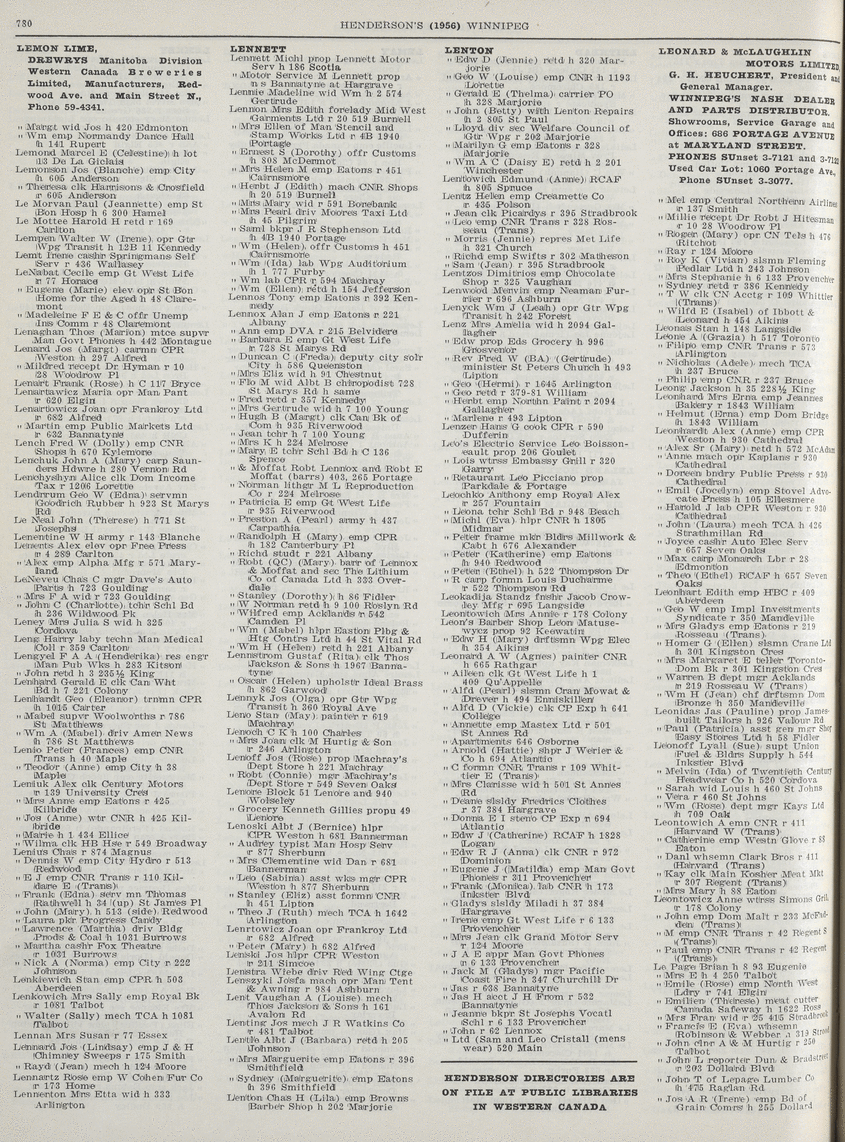 780
HENDERSON'S (1956) WINNIPEG
LEMON LIME,
DREWRYS Manitoba Division
Western Canada Breweries
Limited, Manufacturers, Red-
wood Ave. and Main Street N.,
Phone 59-4341.
" Margt wid Jos h 420 Edmonton
" Wm emp Normandy Dance Hall
h 141 Rupert
Lemond Marcel E (Celestine) h lot
13 De La Giclais
Lemonson Jos (Blanche) emp City
h 605 Anderson
" Theresa clk Harrisons & Crosfield
r 605 Anderson
Le Morvan Paul (Jeannette) emp St
Bon Hosp h 6 300 Hamel
Le Mottee Harold retd r 169
Carlton
Lempen Walter W (Irene) opr Gtr
Wpg Transit h 12B 11 Kennedy
Lemt Irene cashr Springmans Self
Serv r 436 Wallasey
LeNabat Cecile emp Gt West Life
r 77 Horace
" Eugene (Marie) elev opr St Bon
Home for the Aged h 48 Clare-
mont
" Madeleine F E & C offr Unemp
Ins Comm r 48 Claremont
Lenaghan Thos (Marion) mtce supvr
Man Govt Phones h 442 Montague
Lenard Jos (Margt) carmn CPR
Weston h 297 Alfred
" Mildred recept Dr Hyman r 10
28 Woodrow Pl
Lenart Frank (Rose) h C 117 Bryce
Lenartawicz Maria opr Man Pant
r 620 Elgin
Lenartowicz Joan opr Frankroy Ltd
r 682 Alfred
" Martin emp Public Markets Ltd
r 632 Bannatyne
Lench Fred W (Dolly) emp CNR
Shops h 670 Kylemore
Lenchuk John A (Mary) carp Saun-
ders Hdwre h 280 Vernon Rd
Lenchyshyn Alice clk Dom Income
Tax r 1206 Lorette
Lendrum Geo W (Edna) servmn
Goodrich Rubber h 923 St Marys
Rd
Le Neal John (Therese) h 771 St
Josephs
Lenentine W H army r 143 Blanche
Lenents Alex elev opr Free Press
r 4 289 Carlton
" Alex emp Alpha Mfg r 571 Mary-
land
LeNeveu Chas C mgr Dave's Auto
Parts h 723 Goulding
" Mrs F A wid r 733 Goulding
" John C (Charlotte) tchr Schl Bd
h 236 Wildwood Pk
Leney Mrs Julia S wid h 325
Cordova
Leng Harry laby techn Man Medical
Coll r 359 Carlton
Lengyel F A A (Henderika) res engr
Man Pub Wks h 283 Kitson
" John retd h 3 235½ King
Lenhard Gerald E clk Can Wht
Bd h 7 221 Colony
Lenhardt Geo (Eleanor) trnmn CPR
h 1015 Carter
" Mabel supvr Woolworths r 786
St Matthews
" Wm A (Mabel) driv Amer News
h 786 St Matthews
Lenio Peter (Frances) emp CNR
Trans h 40 Maple
" Teodor (Anne) emp City h 38
Maple
Leniuk Alex clk Century Motors
r 129 University Cres
" Mrs Anne emp Eatons r 425
Kilbride
" Jos (Anne) wtr CNR h 425 Kil-
bride
" Marie h 1 434 Ellice
" Wilma clk HB Hse r 549 Broadway
Lenius Chas r 874 Magnus
" Dennis W emp City Hydro r 513
Redwood
" E J emp CNR Trans r 110 Kil-
dare E (Trans)
" Frank (Edna) serv mn Thomas
Rathwell h 34 (up) St James Pl
" John (Mary) h 513 (side) Redwood
" Laura pkr Progress Candy
" Lawrence (Martha) driv Bldg
Prods & Coal h 1031 Burrows
" Martha cashr Fox Theatre
r 1031 Burrows
" Nick A (Norma) emp City r 222
Johnson
Lenkiewich Stan emp CPR h 503
Aberdeen
Lenkowich Mrs Sally emp Royal Bk
r 1081 Talbot
" Walter (Sally) mech TCA h 1081
Talbot
Lennan Mrs Susan r 77 Essex
Lennard Jos (Lindsay) emp J & H
Chimney Sweeps r 175 Smith
" Rayd (Jean) mech h 124 Moore
Lennartz Rose emp W Cohen Fur Co
r 173 Home
Lennenton Mrs Etta wid h 333
Arlington
LENNETT
Lennett Michl prop Lennett Motor
Serv h 186 Scotia
" Motor Service M Lennett prop
n s Bannatyne at Hargrave
Lennie Madeline wid Wm h 2 574
Gertrude
Lennon Mrs Edith forelady Mid West
Garments Ltd r 20 519 Burnell
" Mrs Ellen of Man Stencil and
Stamp Works Ltd r 4B 1940
Portage
" Ernest S (Dorothy) offr Customs
h 808 McDermot
" Mrs Helen M emp Eatons r 451
Cairnsmore
" Herbt J (Edith) mach CNR Shops
h 20 519 Burnell
" Mrs Mary wid r 591 Bonebank
" Mrs Pearl driv Moores Taxi Ltd
h 45 Pilgrim
" Saml bkpr J R Stephenson Ltd
h 4B 1940 Portage
" Wm (Helen) offr Customs h 451
Cairnsmore
" Wm (Ida) lab Wpg Auditorium
h 1 777 Furby
" Wm lab CPR r 594 Machray
" Wm (Ellen) retd h 154 Jefferson
Lennos Tony emp Eatons r 392 Ken-
nedy
Lennox Alan J emp Eatons r 221
Albany
" Ann emp DVA r 215 Belvidere
" Barbara E emp Gt West Life
r 728 St Marys Rd
" Duncan C (Freda) deputy city solr
City h 586 Queenston
" Mrs Eliz wid h 91 Chestnut
" Flo M wid Albt B chiropodist 728
St Marys Rd h same
" Fred retd r 357 Kennedy
" Mrs Gertrude wid h 7 100 Young
" Hugh B (Margt) clk Can Bk of
Com h 935 Riverwood
" Jean tchr h 7 100 Young
" Mrs K h 224 Melrose
" Mary E tchr Schl Bd h C 136
Spence
" & Moffat Robt Lennox and Robt E
Moffat (barrs) 403, 265 Portage
" Norman lithgr M L Reproduction
Co r 224 Melrose
" Patricia E emp Gt West Life
r 935 Riverwood
" Preston A (Pearl) army h 437
Carpathia
" Randolph H (Mary) emp CPR
h 182 Canterbury Pl
" Richd studt r 221 Albany
" Robt (QC) (Mary) barr of Lennox
& Moffat and sec The Lithium
Co of Canada Ltd h 333 Over-
dale
" Stanley (Dorothy) h 86 Fidler
" W Norman retd h 9 100 Roslyn Rd
" Wilfred emp Acklands r 542
Camden Pl
" Wm (Mabel) hlpr Easton Plbg &
Htg Contrs Ltd h 44 St Vital Rd
" Wm H (Helen) retd h 221 Albany
Lennstrom Gustaf (Rita) clk Thos
Jackson & Sons h 1967 Banna-
tyne
" Oscar (Helen) upholstr Ideal Brass
h 862 Garwood
Lennyk Jos (Olga) opr Gtr Wpg
Transit h 360 Royal Ave
Leno Stan (May) painter r 619
Machray
Lenoch C K h 100 Charles
" Mrs Joan clk M Hurtig & Son
r 246 Arlington
Lenoff Jos (Rose) prop Machray's
Dept Store h 221 Machray
" Robt (Connie) mgr Machray's
Dept Store r 549 Seven Oaks
Lenore Block 51 Lenore and 940
Wolseley
" Grocery Kenneth Gillies propu 49
Lenore
Lenoski Albt J (Bernice) hlpr
CPR Weston h 681 Bannerman
" Audrey typist Man Hosp Serv
r 877 Sherburn
" Mrs Clementine wid Dan r 681
Bannerman
" Leo (Sabina) asst wks mgr CPR
Weston h 877 Sherburn
" Stanley (Eliz) asst formn CNR
h 451 Lipton
" Theo J (Ruth) mech TCA h 1642
Arlington
Lenrtowicz Joan opr Frankroy Ltd
r 682 Alfred
" Peter (Mary) h 682 Alfred
Lenski Jos hlpr CPR Weston
r 211 Simcoe
Lenstra Wiebe driv Red Wing Ctge
Lenszyki Josfa mach opr Man Tent
& Awning r 984 Ashburn
Lent Vaughan A (Louise) mech
Thos Jackson & Sons h 161
Avalon Rd
Lenting Jos mech J R Watkins Co
r 481 Talbot
Lentile Albt J (Barbara) retd h 205
Johnson
" Mrs Marguerite emp Eatons r 396
Smithfield
" Sydney (Marguerite) emp Eatons
h 396 Smithfield
Lenton Chas H (Lila) emp Browns
Barber Shop h 202 Marjorie
LENTON
" Edw D (Jennie) retd h 320 Mar-
jorie
" Geo W (Louise) emp CNR h 1193
Lorette
" Gerald E (Thelma) carrier PO
h 328 Marjorie
" John (Betty) with Lenton Repairs
h 2 805 St Paul
" Lloyd div sec Welfare Council of
Gtr Wpg r 202 Marjorie
" Marilyn G emp Eatons r 328
Marjorie
" Wm A C (Daisy E) retd h 2 201
Winchester
Lentowich Edmund (Anne) RCAF
h 805 Spruce
Lentz Helen emp Creamette Co
r 435 Polson
" Jean clk Picardys r 395 Stradbrook
" Leo emp CNR Trans r 328 Ros-
seau (Trans)
" Morris (Jennie) repres Met Life
h 321 Church
" Richd emp Swifts r 302 Matheson
" Sam (Jean) r 395 Stradbrook
Lentzos Dimitrios emp Chocolate
Shop r 325 Vaughan
Lenwood Menvin emp Neaman Fur-
rier r 696 Ashburn
Lenyck Wm J (Leah) opr Gtr Wpg
Transit h 242 Forest
Lenz Mrs Amelia wid h 2094 Gal-
lagher
" Edw prop Eds Grocery h 996
Grosvenor
" Rev Fred W (BA) (Gertrude)
minister St Peters Church h 493
Lipton
" Geo (Hermi) r 1645 Arlington
" Geo retd r 379-81 William
" Herbt emp Northn Paint r 2094
Gallagher
" Marlene r 493 Lipton
Lenzer Hans G cook CPR r 590
Dufferin
Leo's Electric Service Leo Boisson-
eault prop 206 Goulet
" Lois wtrss Embassy Grill r 320
Garry
" Retaurant Leo Picciano prop
Parkdale & Portage
Leochko Anthony emp Royal Alex
r 257 Fountain
" Leona tchr Schl Bd r 948 Beach
" Michl (Eva) hlpr CNR h 1805
Midmar
" Peter frame mkr Bldrs Millwork &
Cabt h 676 Alexander
" Peter (Katherine) emp Eatons
h 940 Redwood
" Peter (Ethel) h 522 Thompson Dr
" R carp formn Louis Ducharme
r 522 Thompson Rd
Leokadija Stands fnshr Jacob Crow-
ley Mfg r 695 Langside
Leontowich Mrs Annie r 178 Colony
Leon's Barber Shop Leon Matuse-
wycz prop 92 Keewatin
" Edw H (Mary) drftsmn Wpg Elec
h 354 Aikins
Leonard A W (Agnes) painter CNR
h 665 Rathgar
" Aileen clk Gt West Life h 1
409 Qu'Appelle
" Alfd (Pearl) slsmn Cran Mowat &
Drever h 494 Enniskillen
" Alfd D (Vickie) clk CP Exp h 641
College
" Annette emp Mastex Ltd r 501
St Annes Rd
" Apartments 646 Osborne
" Arnold (Hattie) shpr J Werier &
Co h 694 Atlantic
" C formn CNR Trans r 109 Whit-
tier E (Trans)
" Mrs Clarisse wid h 501 St Annes
Rd
" Deane slsldy Fredrics Clothes
r 37 384 Hargrave
" Donna E I steno CP Exp r 694
Atlantic
" Edw J (Catherine) RCAF h 1828
Logan
" Edw R J (Anna) clk CNR r 972
Dominion
" Eugene J (Matilda) emp Man Govt
Phones r 311 Provencher
" Frank (Monica) lab CNR h 173
Inkster Blvd
" Gladys slsldy Miladi h 37 384
Hargrave
" Irene emp Gt West Life r 6 133
Provencher
" Mrs Jean clk Grand Motor Serv
r 124 Moore
" J A E appr Man Govt Phones
r 6 133 Provencher
" Jack M (Gladys) mgr Pacific
Coast Fire h 347 Churchill Dr
" Jas r 638 Bannatyne
" Jas H acct J H From r 532
Bannatyne
" Jeanne bkpr St Josephs Vocatl
Schl r 6 133 Provencher
" John r 62 Lennox
" Ltd (Sam and Leo Cristall (mens
wear) 520 Main
HENDERSON DIRECTORIES ARE
ON FILE AT PUBLIC LIBRARIES
IN WESTERN CANADA
LEONARD & McLAUGHLIN
MOTORS LIMITED
G. H. HEUCHERT, President and
General Manager.
WINNIPEG'S NASH DEALER
AND PARTS DISTRIBUTOR.
Showrooms, Service Garage and
Offices: 686 PORTAGE AVENUE
at MARYLAND STREET.
PHONES SUnset 3-7121 and 3-7122
Used Car Lot: 1060 Portage Ave.,
Phone SUnset 3-3077.
" Mel emp Central Northern Airlines
r 137 Smith
" Millie recept Dr Robt J Hitesman
r 10 28 Woodrow Pl
" Roger (Mary) opr CN Tels h 476
Ritchot
" Ray r 124 Moore
" Roy K (Vivian) slsmn Fleming
Pedlar Ltd h 243 Johnson
" Mrs Stephanie h 6 133 Provencher
" Sydney retd r 386 Kennedy
" T W clk CN Acctg r 109 Whittier
(Trans)
" Wilfd E (Isabel) of Ibbott &
Leonard h 454 Aikins
Leonais Stan h 148 Langside
Leone A (Grazia) h 517 Toronto
" Filipo emp CNR Trans r 573
Arlington
" Nicholas (Adele) mech TCA
h 237 Bruce
" Philip emp CNR r 237 Bruce
Leong Jackson h 35 228½ King
Leonhard Mrs Erna emp Jeannes
Bakery r 1843 William
" Helmut (Erna) emp Dom Bridge
h 1843 William
Leonhardt Alex (Anne) emp CPR
Weston h 930 Cathedral
" Alex Sr (Mary) retd h 572 McAdam
" Anne mach opr Kaplans r 930
Cathedral
" Doreen bndry Public Press r 930
Cathedral
" Emil (Jocelyn) emp Stovel Advo-
cate Press h 105 Ellesmere
" Harold J lab CPR Weston r 930
Cathedral
" John (Laura) mech TCA h 426
Strathmillan Rd
" Joyce cashr Auto Elec Serv
r 657 Seven Oaks
" Max carp Monarch Lbr r 28
Edmonton
" Theo (Ethel) RCAF h 657 Seven
Oaks
Leonhart Edith emp HBC r 409
Aberdeen
" Geo W emp Impl Investments
Syndicate r 350 Mandeville
" Mrs Gladys emp Eatons r 219
Rosseau (Trans)
" Homer G (Ellen) slsmn Crane Ltd
h 301 Kingston Cres
" Mrs Margaret E teller Toronto-
Dom Bk r 301 Kingston Cres
" Warren B dept mgr Acklands
r 219 Rosseau W (Trans)
" Wm H (Jean) chf drftsmn Dom
Bronze h 350 Mandeville
Leonidas Jas (Pauline) prop James-
built Tailors h 926 Valour Rd
" Paul (Patricia) asst gen mgr Shop
Easy Stores Ltd h 58 Fidler
Leonoff Lyall (Sue) supt Union
Fuel & Bldrs Supply h 544
Inkster Blvd
" Melvin (Ida) of Twentieth Century
Headwear Co h 520 Cordova
" Sarah wid Louis h 460 St Johns
" Vera r 460 St Johns
" Wm (Rose) dept mgr Kays Ltd
h 709 Oak
Leontowich A emp CNR r 411
Harvard W (Trans)
" Catherine emp Westn Glove r 88
Eaton
" Danl whsemn Clark Bros r 411
Harvard (Trans)
" Kay clk Main Kosher Meat Mkt
r 307 Regent (Trans)
" Mrs Mary h 88 Eaton
Leontowicz Anne wtrss Simons Gril
r 178 Colony
" John emp Dom Malt r 233
den (Trans)
" M emp CNR Trans r 42 Regent
(Trans)
" Paul emp CNR Trans r 42 Regent
(Trans)
Le Page Brian h 8 93 Eugenie
" Mrs E h 4 250 Talbot
" Emile (Rose) emp North West
Ldry r 741 Elgin
" Emilien (Therese) meat cutter
Canada Safeway h 1622 Ross
" Mrs Fran wid r 25 415 Stradbrook
" Francis E (Eva) whsemn
Robinson & Webber h 319 Street
" John clnr A & M Hurtig r 250
Talbot
" John L reporter Dun & Bradstreet
r 203 Dollard Blvd
" John T of Lepage Lumber Co
h 475 Raglan Rd
" Jos A R (Irene) emp Bd of
Grain Comrs h 255 Dollard